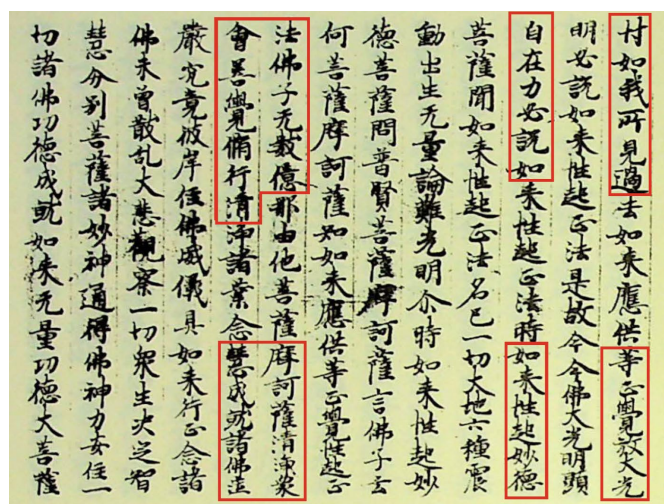 忖如我所見過去如来應供等正覺放大光
明必說如来性起正法是故今今佛大光明顯
自在力必說如来性起正法時如来性起妙德
菩薩聞如来性起正法名已一切大地六種震
動出生无量論難光明尒時如来性起妙
德菩薩問普賢菩薩摩訶薩言佛子云
何菩薩摩訶薩知如来應供等正覺性起正
法佛子无數億那由他菩薩摩訶薩清淨衆
會善覺脩行清淨諸業念慧成就諸佛莊
嚴究竟彼岸住佛威儀具如来行正念諸
佛未曾散乱大悲觀察一切衆生决定智
慧分别菩薩諸妙神通得佛神力安住一
切諸佛功德成就如来无量功德大菩薩